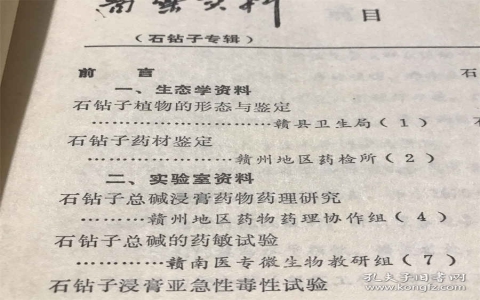 资料
目
（石钻子专辑）
前 言
一、生态学资料
石钻子植物的形态与鉴定
……………………赣县卫生局（1）
石钻子药材鉴定
………………赣州地区药检所（2）
二、实验室资料
石钻子总碱浸膏药物药理研究
………赣州地区药物药理协作组（4）
石钻子总碱的药敏试验
…………赣南医专微生物教研组（7）
石钻子浸膏亚急性毒性试验
孔夫子旧书网